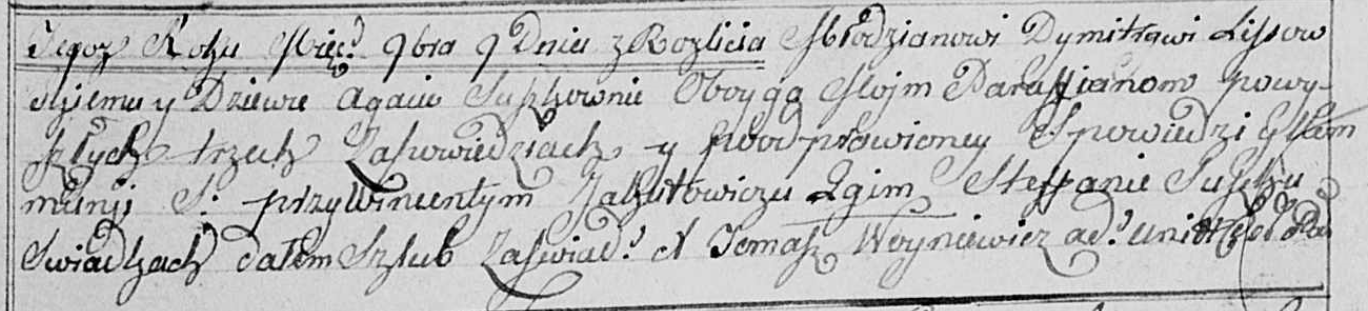 Tegoż Roku Mięc? 9bra 9 Dniu z Rozlicia Młodzianowi Dymitrowi Lissow
skiemu y Dziewce Agacie Suszkownie Obojga Moim Parafianom powy-
szłych trzech Zapowiedziach y po odprawioney Spowiedzi y Kom
munji S. przy Wincentym 2gim Steffanie Suszku
Swiadkach dałem Szlub Zaświad? X Tomasz Woyniewicz ad?